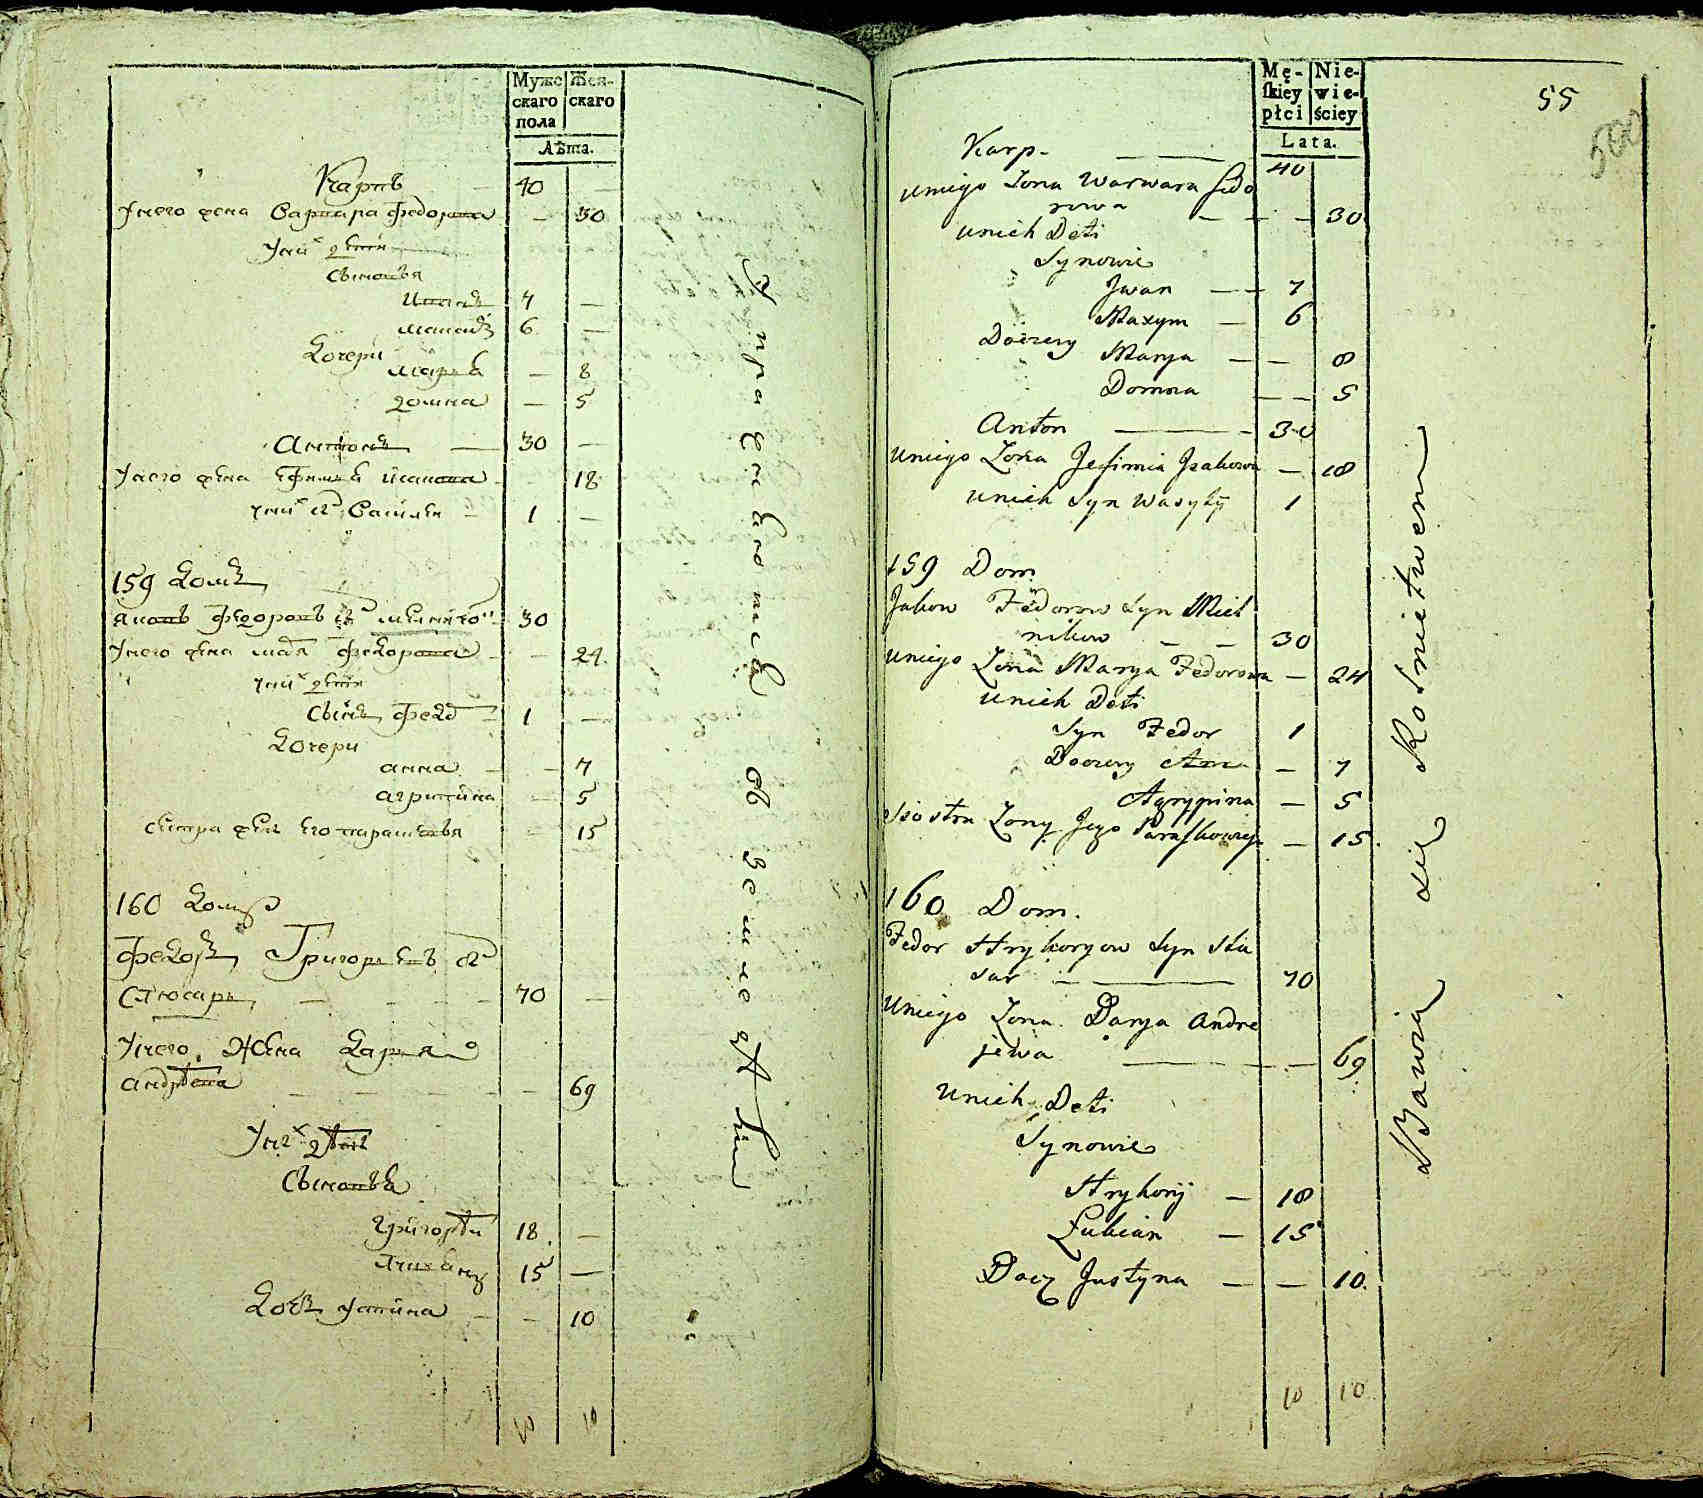 Мужс
скаго
пола
Жен-
скаго
Лѣта.
Карпъ — 40 —
У него жена Варвара Федорова — 30
У них дети
Сыновья
Иванъ 7 —
Максимъ 6 —
Дочери
Марья — 8
Домна — 5
Антонъ — 30 —
У него жена Ефимья Исакова — 18
у них сн Василей 1 —
159 Домъ
Яковъ Федоровъ сн Мельниковъ 30
У него жена Марья Федорова — 24
у них дети
Сынъ Федор 1 —
Дочери
Анна — 7
Агрипина — 5
Сестра жены его Парасковья — 15
160 Домъ
Федоръ Григорьевъ сн
Слюсарь — 70 —
У него жена Дарья
Андрѣева — 69
У них дѣти
Сыновья
Григорѣй 18 —
Лукьянъ 15 —
Дочь Устина — 10
10 10
Упражняются в земледѣлии
Mę-
skiey
płci
Nie-
wie-
ściey
Lata.
55
500
Karp — 40
uniego Zona Warwara Fedo
rowa — — 30
unich Deti
Synowie
Jwan — 7
Maxym — 6
Doczery
Marya — — 8
Domna — — 5
Anton — 30
uniego Zona Jefimia Jzakowa — 18
unich Syn Wasyły 1
159 Dom
Jakow Fedorow Syn Miel
nikow — — 30
uniego Zona Marya Fedorowa — 24
unich Deti
Syn Fedor 1
Doczery Anna — 7
Agrypina — 5
Siostra Zony Jego Paraskowiya — 15
160 Dom.
Fedor Hryhoryow Syn Slu
sar — 70
uniego Zona Darya Andre
jewa — — 69
unich Deti
Synowie
Hryhory — 18
Łukian — 15
Docz Justyna — — 10
10 10
Bawią się Rolnictwem